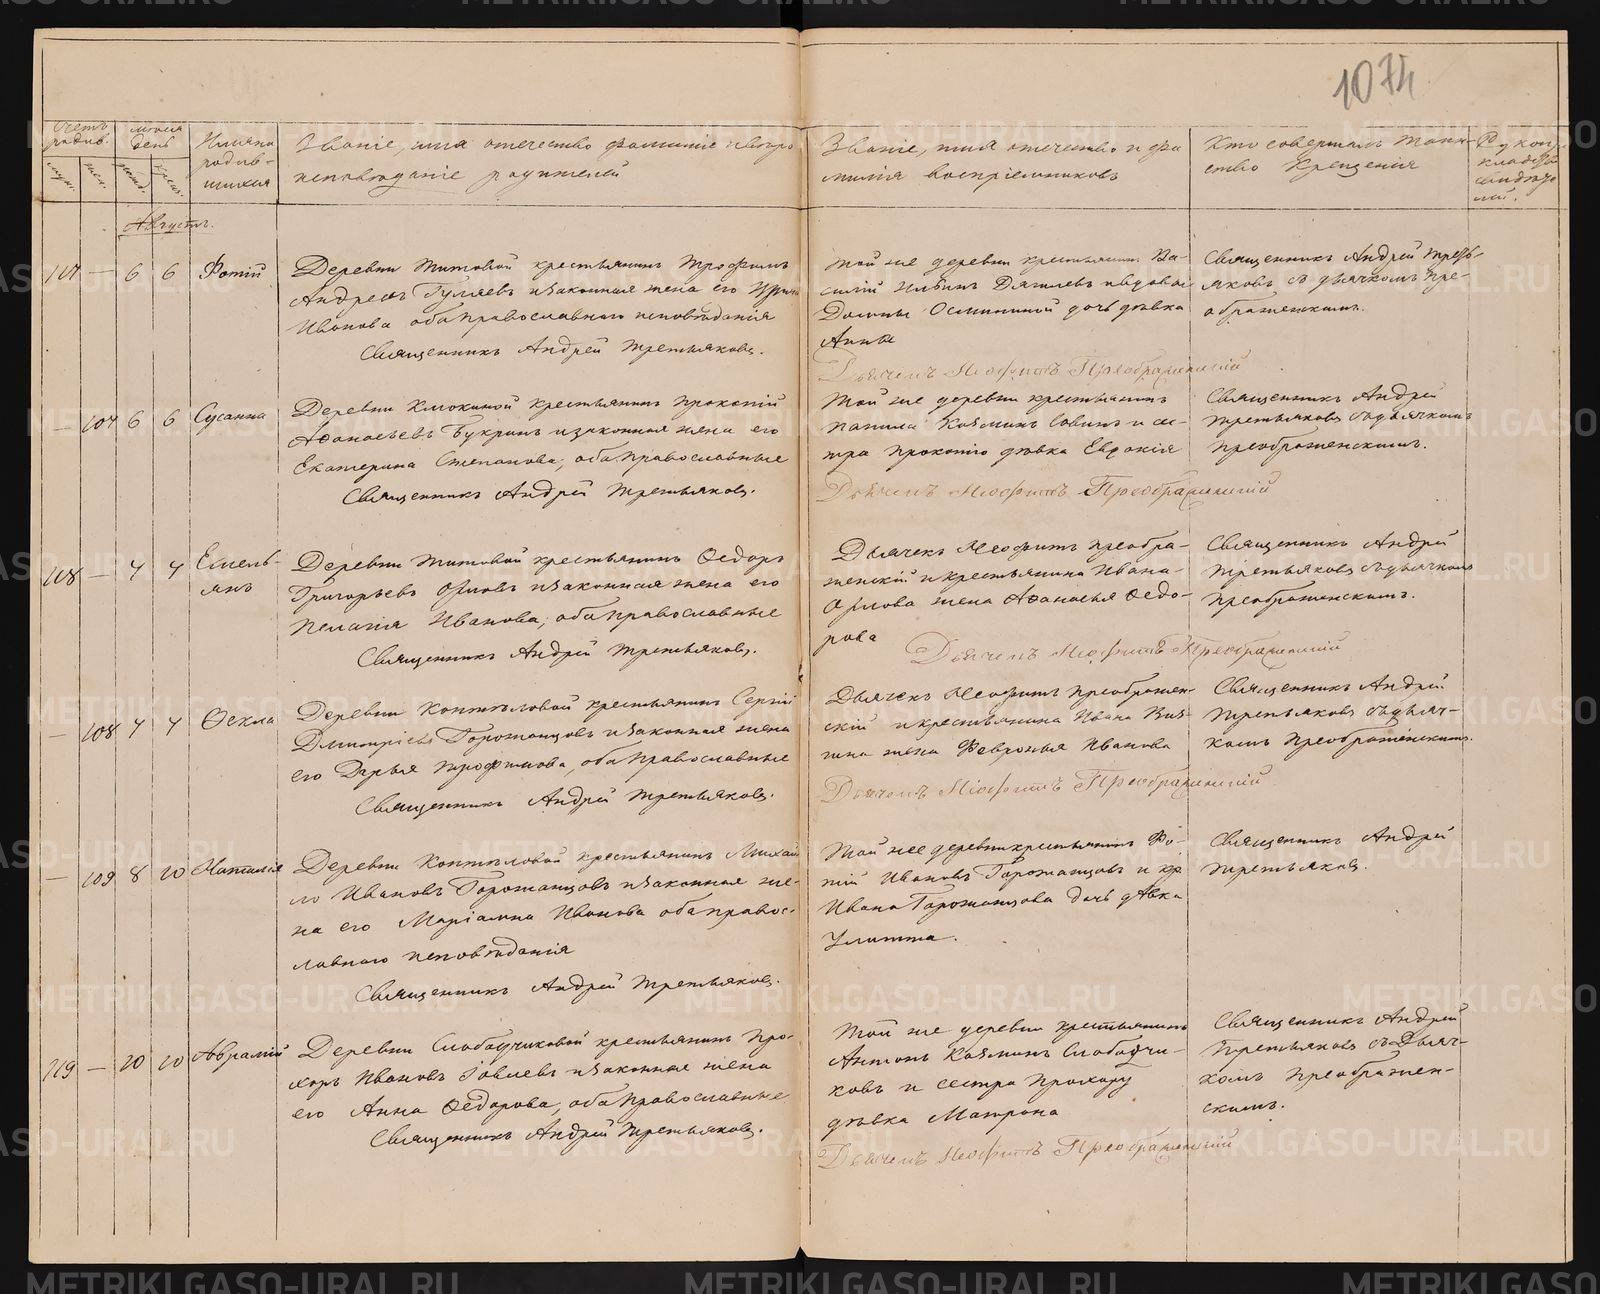 1074
Счетъ родив.
муж.
жен.
Мѣсяцъ день
рожд.
крещ.
Имяна родив-
шихся
Званіе, имя отечество фамиліе и вѣро
исповѣданіе родителей
Званіе, имя отечество и фа
миліи воспріемниковъ
Кто совершалъ таин-
ство Крещенія
Августъ.
117 — 6 6 Фотій
Деревни Титовой крестьянинъ Трофимъ
Андреевъ Гуляевъ и законная жена его
Иванова оба православнаго исповѣданія
Священникъ Андрей Третьяковъ.
Той же деревни крестьянинъ Ва-
силій Ильинъ и вдовы
дочь дѣвка
Анна
Дьячекъ Неофитъ Преображенскій
Священникъ Андрей Треть-
яковъ съ дьячкомъ Пре-
ображенскимъ.
— 107 6 6 Сусанна
Деревни Клюкиной крестьянинъ Прокопій
Афанасьевъ Букринъ и законная жена его
Екатерина Степанова, оба православные
Священникъ Андрей Третьяковъ.
Той же деревни крестьянинъ
Козминъ Савинъ и сес-
тра Прокопію дѣвка Евдокія
Дьячекъ Неофитъ Преображенскій
Священникъ Андрей
Третьяковъ съ дьячкомъ
Преображенскимъ.
118 — 7 7 Емель-
янъ
Деревни Титовой крестьянинъ Федоръ
Григорьевъ Орловъ и законная жена его
Пелагія Иванова, оба православные
Священникъ Андрей Третьяковъ.
Дьячекъ Неофитъ Преобра-
женскій и крестьянина Ивана
Орлова жена Афанасья Федо-
рова
Дьячекъ Неофитъ Преображенскій
Священникъ Андрей
Третьяковъ съ дьячкомъ
Преображенскимъ.
— 108 7 7 Фекла
Деревни Коптѣловой крестьянинъ Сергій
Дмитріевъ Горожанцовъ и законная жена
его Дарья Трофимова, оба православные
Священникъ Андрей Третьяковъ.
Дьячекъ Неофитъ Преображен-
скій и крестьянина Ивана
жена Февронья Иванова
Дьячекъ Неофитъ Преображенскій
Священникъ Андрей
Третьяковъ съ дьяч-
комъ Преображенскимъ.
— 109 8 10 Наталія
Деревни Коптѣловой крестьянинъ Михай
ло Ивановъ Горожанцовъ и законная же-
на его Маріамна Иванова оба правос-
лавнаго исповѣданія
Священникъ Андрей Третьяковъ.
Той же деревни крестьянинъ Фо-
тій Ивановъ Горожанцовъ и кр.
Ивана Горожанцова дочь дѣвка
Улитта.
Священникъ Андрей
Третьяковъ.
119 — 10 10 Аврамій
Деревни Слободчиковой крестьянинъ Про-
хоръ Ивановъ и законная жена
его Анна Федорова, оба православные
Священникъ Андрей Третьяковъ.
Той же деревни крестьянинъ
Антонъ Козминъ Слободчи-
ковъ и сестра Прохору
дѣвка Матрона
Дьячекъ Неофитъ Преображенскій
Священникъ Андрей
Третьяковъ съ Дьяч-
комъ Преображен-
скимъ.
METRIKI.GASO-URAL.RU